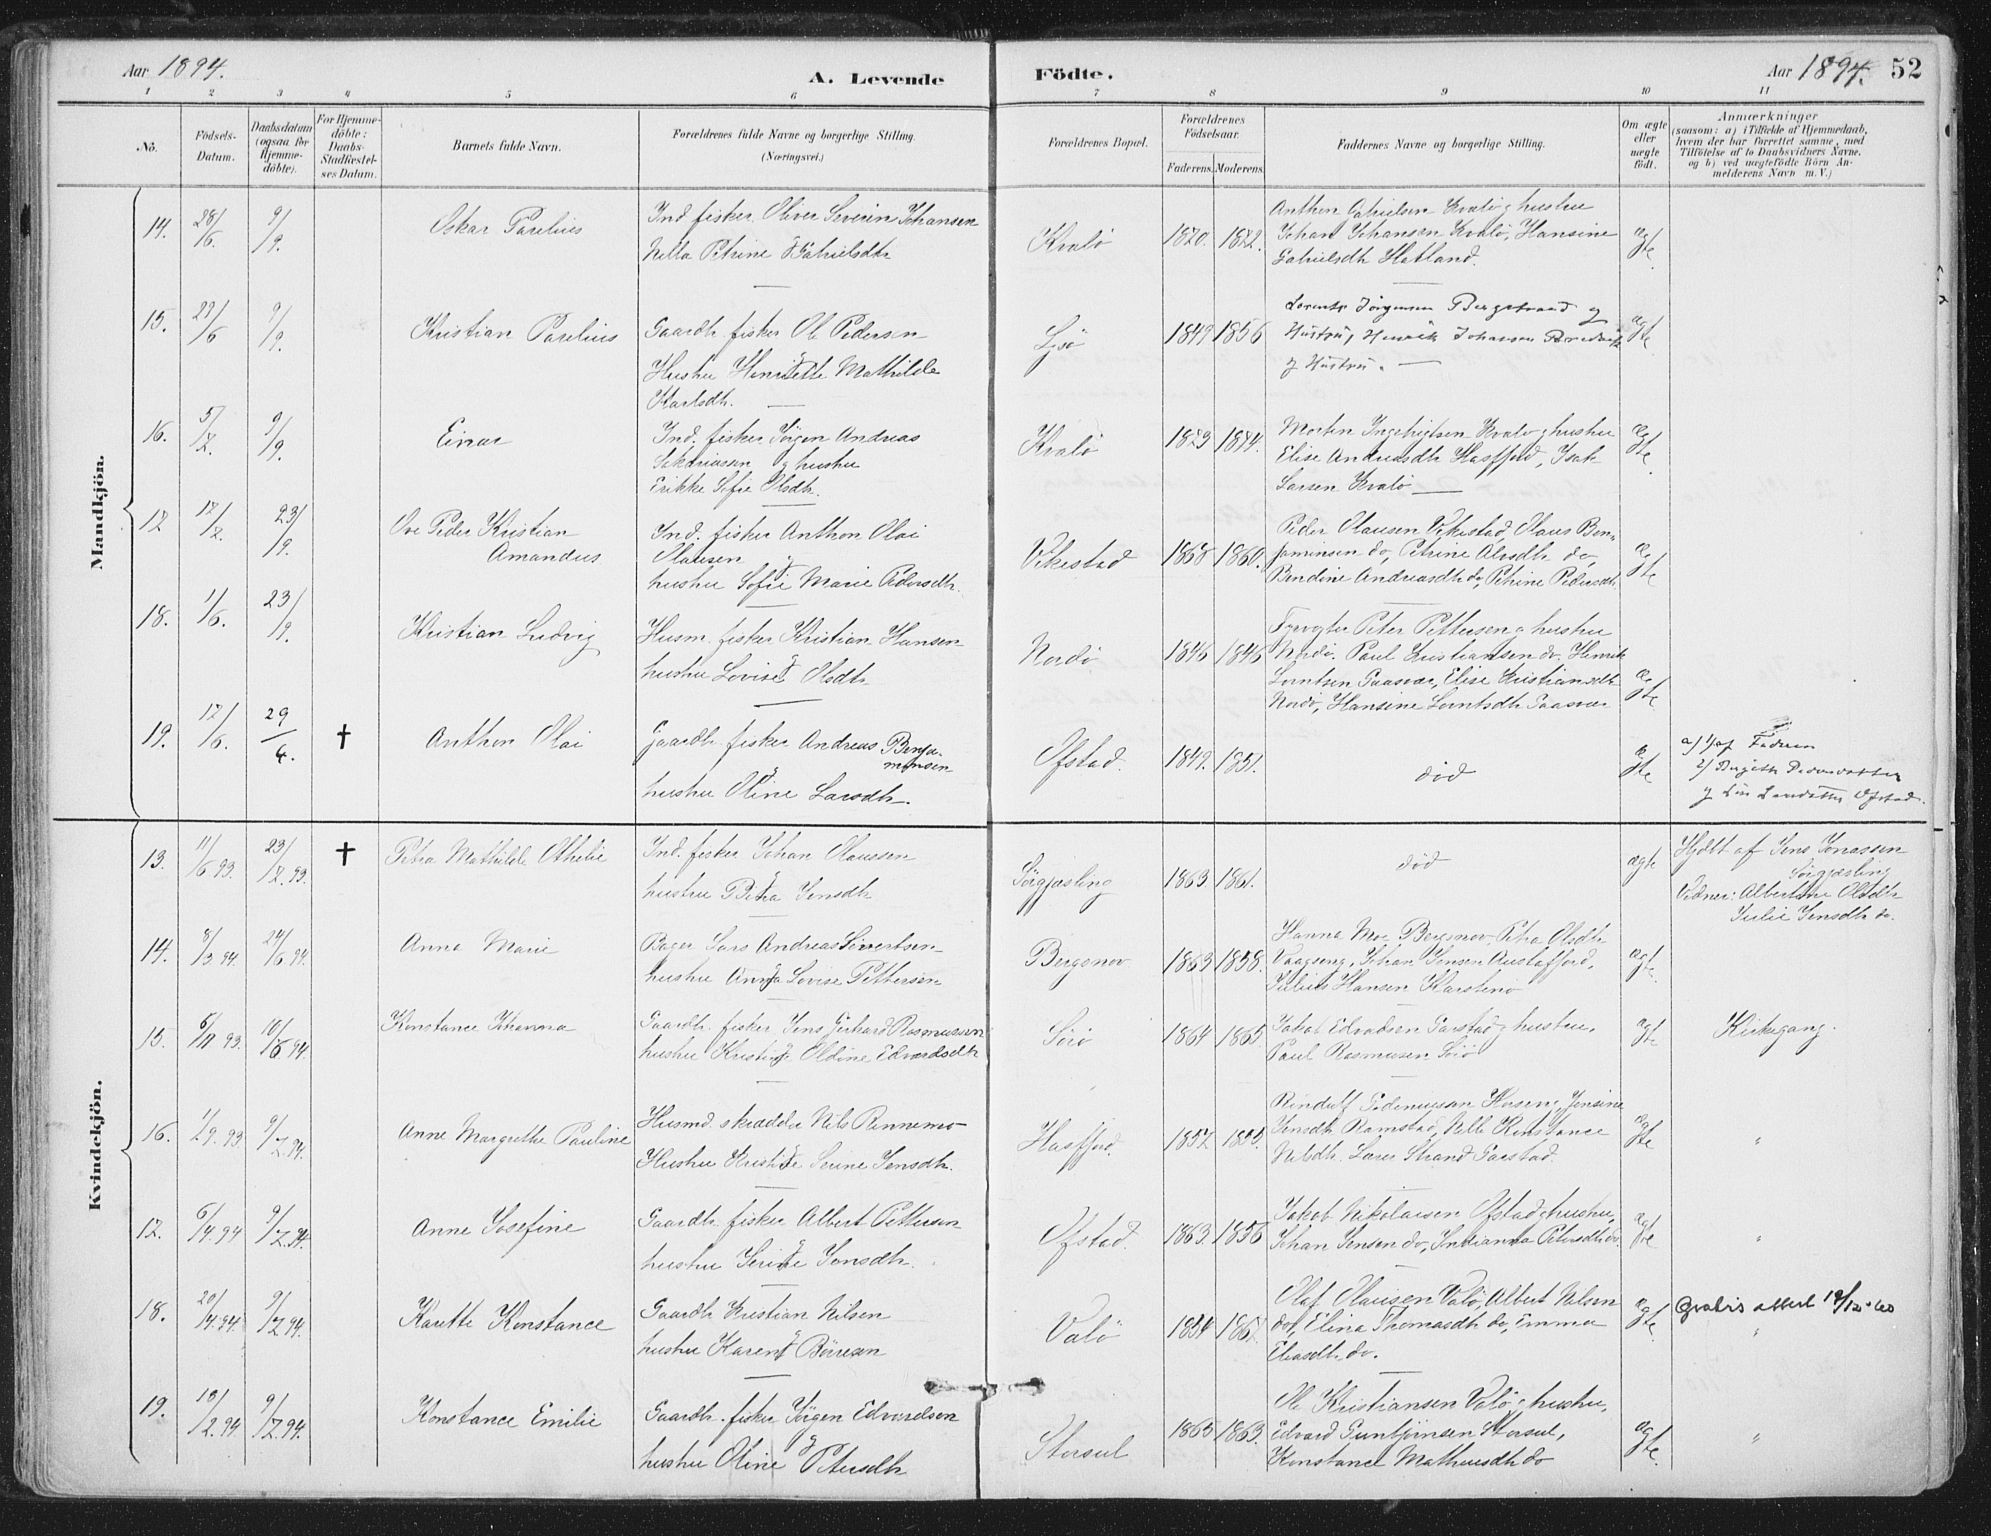 Aar 1894.
A. Levende
Födte.
Aar 1894. 52
1 2 3 4 5 6 7 8 9 10 11
No.
Födsels-
Datum.
Daabsdatum
(ogsaa for
Hjemme-
döbte).
For Hjemme-
döbte:
Daabs-
Stadfæstel-
ses Datum.
Barnets fulde Navn.
Forældrenes fulde Navne og borgerlige Stilling.
(Næringsvei.)
Forældrenes Bopæl.
Forældrenes
Födselsaar.
Faderens. Moderens.
Faddernes Navne og borgerlige Stilling.
Om ægte
eller
uægte
födt.
Anmærkninger
(saasom: a) i Tilfælde af Hjemmedaab,
hvem der har forrettet samme, med
Tilföielse af to Daabsvidners Navne,
og b) ved uægtefödte Börn An-
melderens Navn m. V.)
Mandkjön.
14. 28/6. 9/9. Oskar Parelius
Ind. fisker Oliver Severin Johansen
Petrine Gabrielsdtr
Kvalö 1870. 1872.
Anthon Gabrielsen Kvalö og hustru
Johan Johansen Kvalö, Hansine
Gabrielsdtr Hatland.
ægte
15. 29/6 9/9. Kristian Parelius
Gaardbr. fisker Ole Pedersen
Hustru Henriette Mathilde
Karlsdtr.
1849 1856
Lorents Jörgensen Bergstrand og
Hustru, Henrik Johansen
og Hustru.
ægte
16. 5/7. 9/9. Einar
Ind. fisker Jörgen Andreas
Sakariassen og hustru
Erikke Sofie Olsdtr.
Kvalö
Morten Ingebrigtsen Kvalö og hustru
Elise Andreasdtr Hasfjord, Isak
Larsen Kvalö
ægte
17 17/7. 23/9. Ove Peder Kristian
Amandus
Ind. fisker Anthon Olai
Olausen og
hustru Sofie Marie Pedersdtr.
Vikestad 1868 1860.
Peder Olausen Vikestad, Olaus Ben-
jaminsen do, Petrine do,
Bendine Andreasdtr do, Petrine Pedersdtr
ægte
18. 1/6. 23/9. Kristian Ludvig
Husm. fisker Kristian Hansen
hustru Lovise Olsdtr
Nordö 1846 1846
Fyrvogter Peter Pettersen og hustru
Nordö. Paul Kristiansen do. Henrik
Lorntsen Gaasvær, Elise Kristiansdtr
Nordö, Hansine Lorntsdtr Gaasvær
ægte
19. 17/6. 29/6. † Anthon Olai
Gaardbr. fisker Andreas Benja-
minsen
hustru Oline Larsdtr.
Ofstad. 1849. 1851.
död
ægte
a) 1/ af Faderen
2/ Pedersdatter
og Larsdatter Ofstad.
Kvindekjön.
13. 11/6 93. 23/7. 93. † Petra Mathilde Othelie
Ind. fisker Johan Olaussen
hustru Petra Jensdtr
Sörgjæsling 1863. 1861.
död
ægte
Hjdbt af Jens Jonassen
Sörgjæsling
Vidner: Albertine Olsdtr
Julie Jensdtr do.
14. 8/3. 94. 24/6 94. Anna Marie
Bager Lars Andreas Sivertsen
hustru Anna Lovise Pettersen
Bergsnov 1863 1858.
Hanna Moe Bergsnov, Petra Olsdtr
Vaagseng, Johan Jensen Austafjord,
Julius Hansen Karstenö
ægte
15. 6/11 93. 10/6 94. Konstance Johanna
Gaardbr. fisker Jens Gerhard Rasmussen
hustru Kristine Oldine Edvardsdtr
Sörö 1864 1865.
Jakob Edvardsen Garstad og hustru,
Paul Rasmussen Sörö
ægte
Kirkegang.
16. 1/9. 93. 9/7. 94. Anne Margrethe Pauline
Husmd. skrædder Nils Rennemo
Hustru Kristine Serine Jensdtr.
Hasfjord. 1857. 1855.
Husen, Jensine
Jensdtr Ramstad, Konstance
Nilsdtr. Strand Garstad.
ægte
"
17. 6/4. 94 9/7. 94. Anne Josefine
Gaardbr. fisker Albert Pettersen
hustru Serine Jonsdtr.
Ofstad. 1863. 1856
Jakob Nikolaisen Ofstad og hustru,
Johan Jensen do, Indianna Petersdtr do.
ægte
"
18. 20/4. 94. 9/7. 94. Karette Konstance
Gaardbr. Kristian Nilsen
hustru Karen Börresen
Valö 1854
Olaf Olausen Valö, Albert Nilsen
do, Elina Thomasdtr do, Emma
Eliasdtr do.
ægte
Gratis attest
"
19. 18/2. 94. 9/7. 94. Konstance Emilie
Gaardbr. fisker Jörgen Edvardsen
hustru Oline Petersdtr
Storsul 1865 1863.
Ole Kristiansen Valö og hustru,
Edvard Storsul,
Konstance Mathiasdtr do
ægte.
"